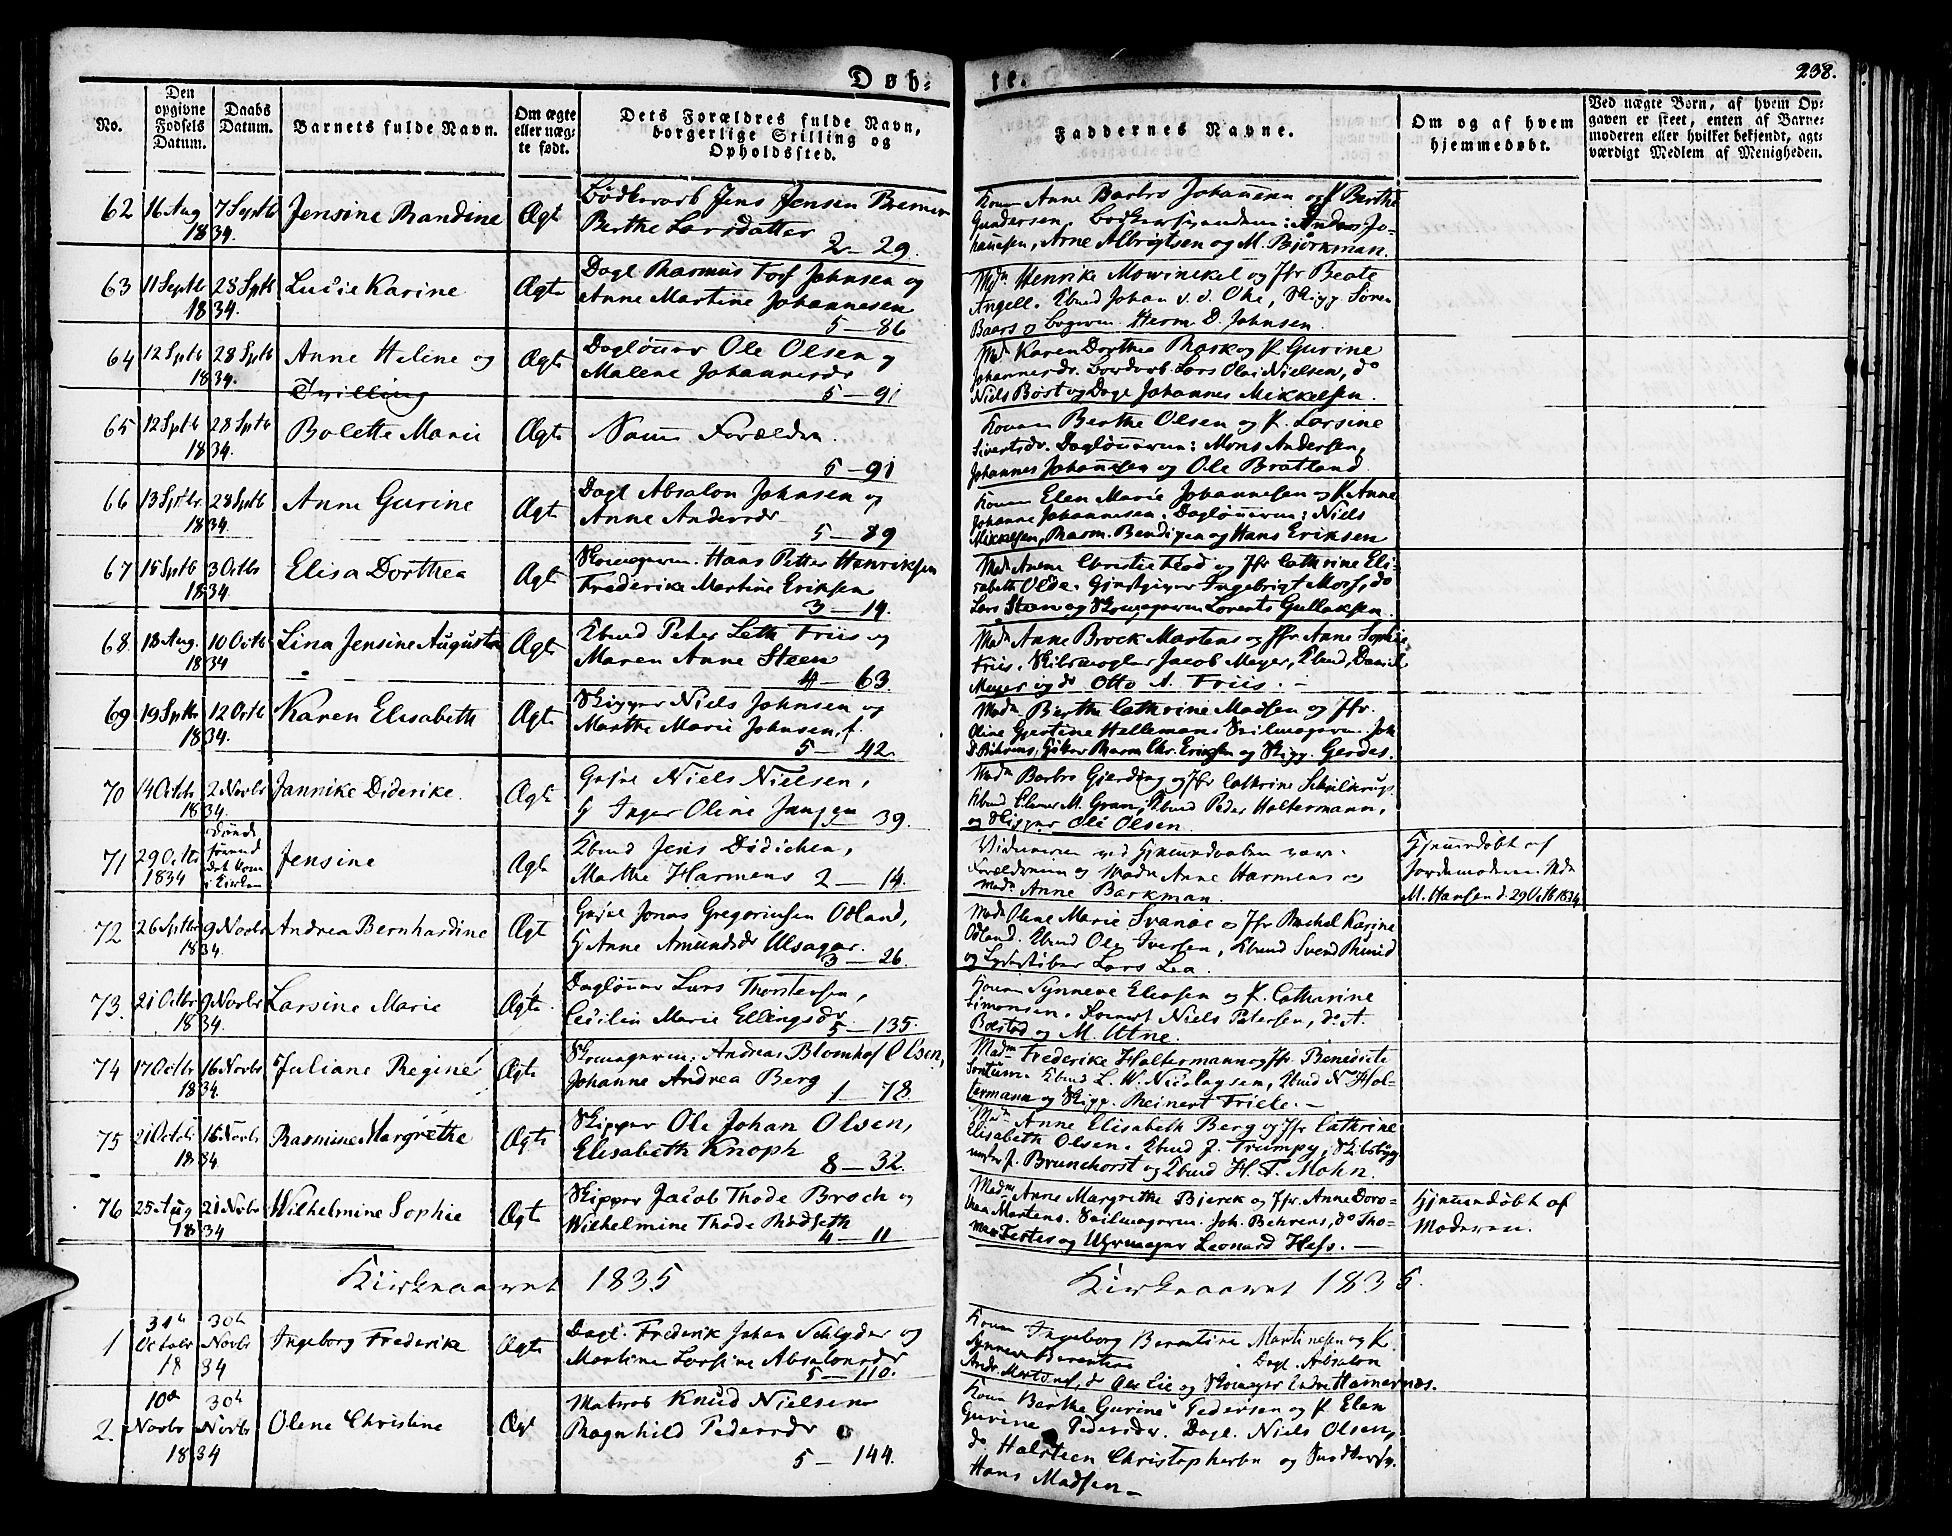 Døb-
te.
238.
No.
Den opgivne Fødsels Datum.
Daabs Datum.
Barnets fulde Navn.
Om ægte eller uæg-te født.
Dets Forældres fulde Navn, borgerlige Stilling og Opholdssted.
Faddernes Navne.
Om og af hvem hjemmedøbt.
Ved uægte Børn, af hvem Op-gaven er skeet, enten af Barne-moderen eller hvilket bekjendt, agt-værdigt Medlem af Menigheden.
62 16 Aug 7 Septb 1834. Jensine Randine Ægt
Bødkersv Jens Jensen Bremer
Berthe Larsdatter
2 – 29.
Anne Barbro Johannesen og P. Berthe
Gundersen, Anders Jo-
hannesen, Arne Albrigtsen og M. Bjørkman.
63 11 Septb 28 Sptb 1834. Lucie Karine Ægte
Dagl Rasmus Johnsen og
Anne Martine Johannesen
5 – 86
Mdm Henrike Mowinckel og Jfr Beate
Angell. Kbmd Johan v. d. Ohe, Skipp Søren
Baars og Herm. D. Johnsen.
64 12 Sptb 28 Sptb 1834. Anne Helene og Ægte
Tvilling
Daglønner Ole Olsen og
Malene Johannesdr
5 – 91
Mad Karen Dorthea Rask og P. Gurine
Johannesdr. Lars Olai Nielsen, do
Niels Børs og Dagl Johannes Mikkelsen.
65 12 Sptb 28 Sptb 1834. Bolette Marie Ægte
Samme Forældre.
5 – 91
Konen Berthe Olsen og P. Larsine
Sivertsdr. Daglønnerne: Mons Andersen,
Johannes Johannesen og Ole Bratland.
66 13 Sptbr 28 Sptb 1834. Anne Gurine Ægte
Dagl Absalon Johnsen og
Anne Andersdr
5 – 89
Konen Elen Marie Johannesen og P. Anne
Johanne Johannesen. Daglønnerne: Niels
Mikkelsen, Rasm. Bendixen og Hans Eriksen
67 15 Sptb 3 Octbr 1834. Elisa Dorthea Ægt
Skomagersv. Hans Petter Henriksen
Frederike Martine Eriksen
3 – 14.
Mad Anne Christie Flod og Jfr Cathrine Eli-
sabeth Olde. Gjestgiver Ingebrigt Mors, do
Lars Steen og Skomagersv Lorents Gullaksen.
68. 13 Aug. 10 Octb 1834 Lina Jensine Augusta Ægte
Kbmd Peter Leth Friis og
Maren Anne Steen
4 – 63.
Madm Anne Brock Martens og Jfr Anne Sophie
Friis. Jacob Meyer, Kbmd, Daniel
Meyer og do Otto A. Friis. –
69 19 Sptbr 12 Octb 1834. Karen Elisabeth Ægte
Skipper Niels Johnsen og
Marthe Marie Johnsen f.
5 – 42.
Madm Berthe Cathrine Madsen og Jfr.
Oline Gjertine Hellemans Seilmagersv. Joh
D. Bihrens, Rasm Chr. Eriksen og Skipp. Gerdes.
70 14 Octbr 2 Novbr 1834. Jannike Diderike. Ægte
Niels Nielsen,
Inger Oline
39.
Madm Barbro Gjerding og Jfr Cathrine
Kbmd M. Gran, Kbmd Peder Holtermann,
og Skipper Ole Olsen.
71 29 Octbr 1834 Døende førend det kom i Kirken Jensine Ægt
Kbmd Jens Didichen,
Marthe Harmens 2 – 14.
Vidnerne ved Hjemmedaaben vare:
Forældrene og Madm Anne Harmens og
Madm Anne Barkman.
Hjemmedøbt af
Jordemoderen Mdm
M. Hansen d. 29 Octb 1834
72 26 Sptbr 9 Novbr 1834. Andrea Bernhardine Ægt
Jonas Gregoriusen Odland,
Anne Amundsdr Ulsager.
3 – 26.
Madm Oline Marie Svanøe og Jfr Rachel Karine
Odland. Kbmd Ole Iversen, Kbmd Svend
og Lars Lea.
73. 21 Octbr 9 Novbr 1834. Larsine Marie Ægte
Daglønner Lars Thorstensen,
Cecilia Marie Ellingsdr
5 – 135.
Konen Synneve Eliasen og P. Catharine
Simonsen. Niels Petersen, do A.
Bolstad og M. Utne.
74 17 Octbr 16 Novbr 1834. Juliane Regine Ægte
Skomagersv. Andreas Blomhof Olsen,
Johanne Andrea Berg
1 – 78.
Madm Frederike Holtermann og Jfr. Benedicte
Sontum. Kbmd L. W. Nicolaysen, Kbmd N Hol-
termann og Skipp. Reinert Friele. –
75 21 Octbr 16 Novbr 1834. Rasmine Margrethe Ægte
Skipper Ole Johan Olsen,
Elisabeth Knoph
8 – 32.
Madm Anne Elisabeth Berg og Jfr Cathrine
Elisabeth Olsen. Kbmd J. Trumpy, Skibsbyg-
mester J. Brunchorst og Kbmd H. F. Mohn.
76 25 Aug 21 Novbr 1834 Wilhelmine Sophie Ægte
Skipper Jacob Thode Broch og
Wilhelmine Thode Rødseth
4 – 11
Madm Anne Margrethe Bjerck og Jfr. Anne Doro-
thea Martens. Seilmagersv. Joh. Behrens, do Tho-
mas Festes og Uhrmager Leonard Hess. –
Hjemmedøbt af
Moderen.
Kirkeaaret 1835
Kirkeaaret 1835.
1 31te October 1834 30te Novbr Ingeborg Frederike Ægte
Dagl. Frederik Johan Schlyder og
Martine Larsine Absalonsdr
5 – 110.
Konen Ingeborg Berentine Martinesen og P.
Synneve Berentine. Dagl. Absalon
do Ole Lie og Skomager Endre Hamernæs.
2. 10de Novbr 1834 30te Novbr Olene Christine Ægt
Matros Knud Nielsen
Ragnhild Pedersdr
5 – 144.
Konen Berthe Gurine Pedersen og P. Elen
Gurine Pedersdr. Dagl. Niels Olsen,
do Halsteen Christophersen og
Hans Madsen –